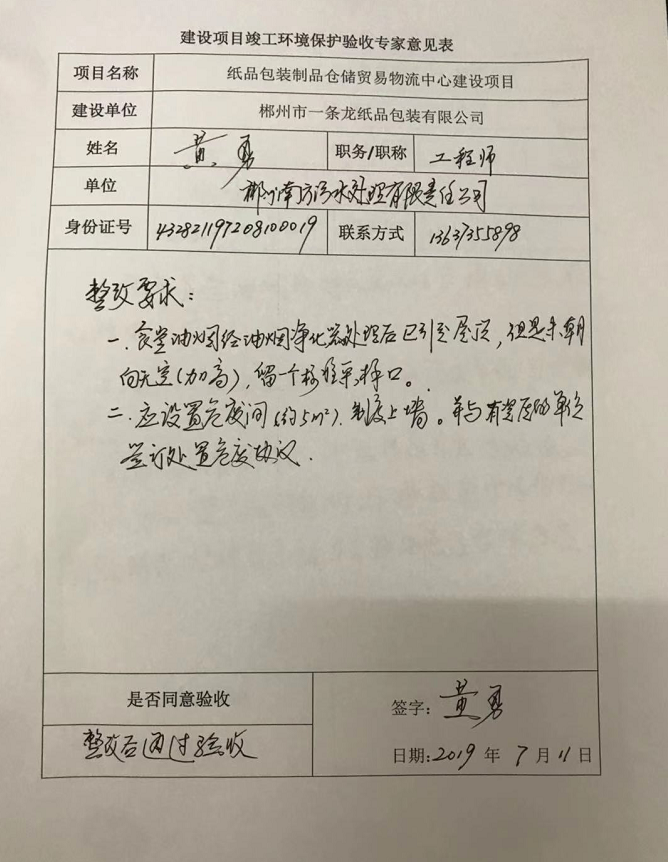 建设项目竣工环境保护验收专家意见表
项目名称 纸品包装制品仓储贸易物流中心建设项目
建设单位 郴州市一条龙纸品包装有限公司
姓名 黄勇 职务/职称 工程师
单位 郴州南方污水处理有限责任公司
身份证号 432821197208100019 联系方式 13637355898
整改要求：
一.食堂油烟经油烟净化器处理后已引至屋顶，但是未朝
向天空(加高)，留一个标准采样口。
二.应设置危废间(约5m²).制度上墙。并与有资质的单位
签订处置危废协议.
是否同意验收
签字: 黄勇
整改后通过验收
日期:2019 年 7 月 11 日